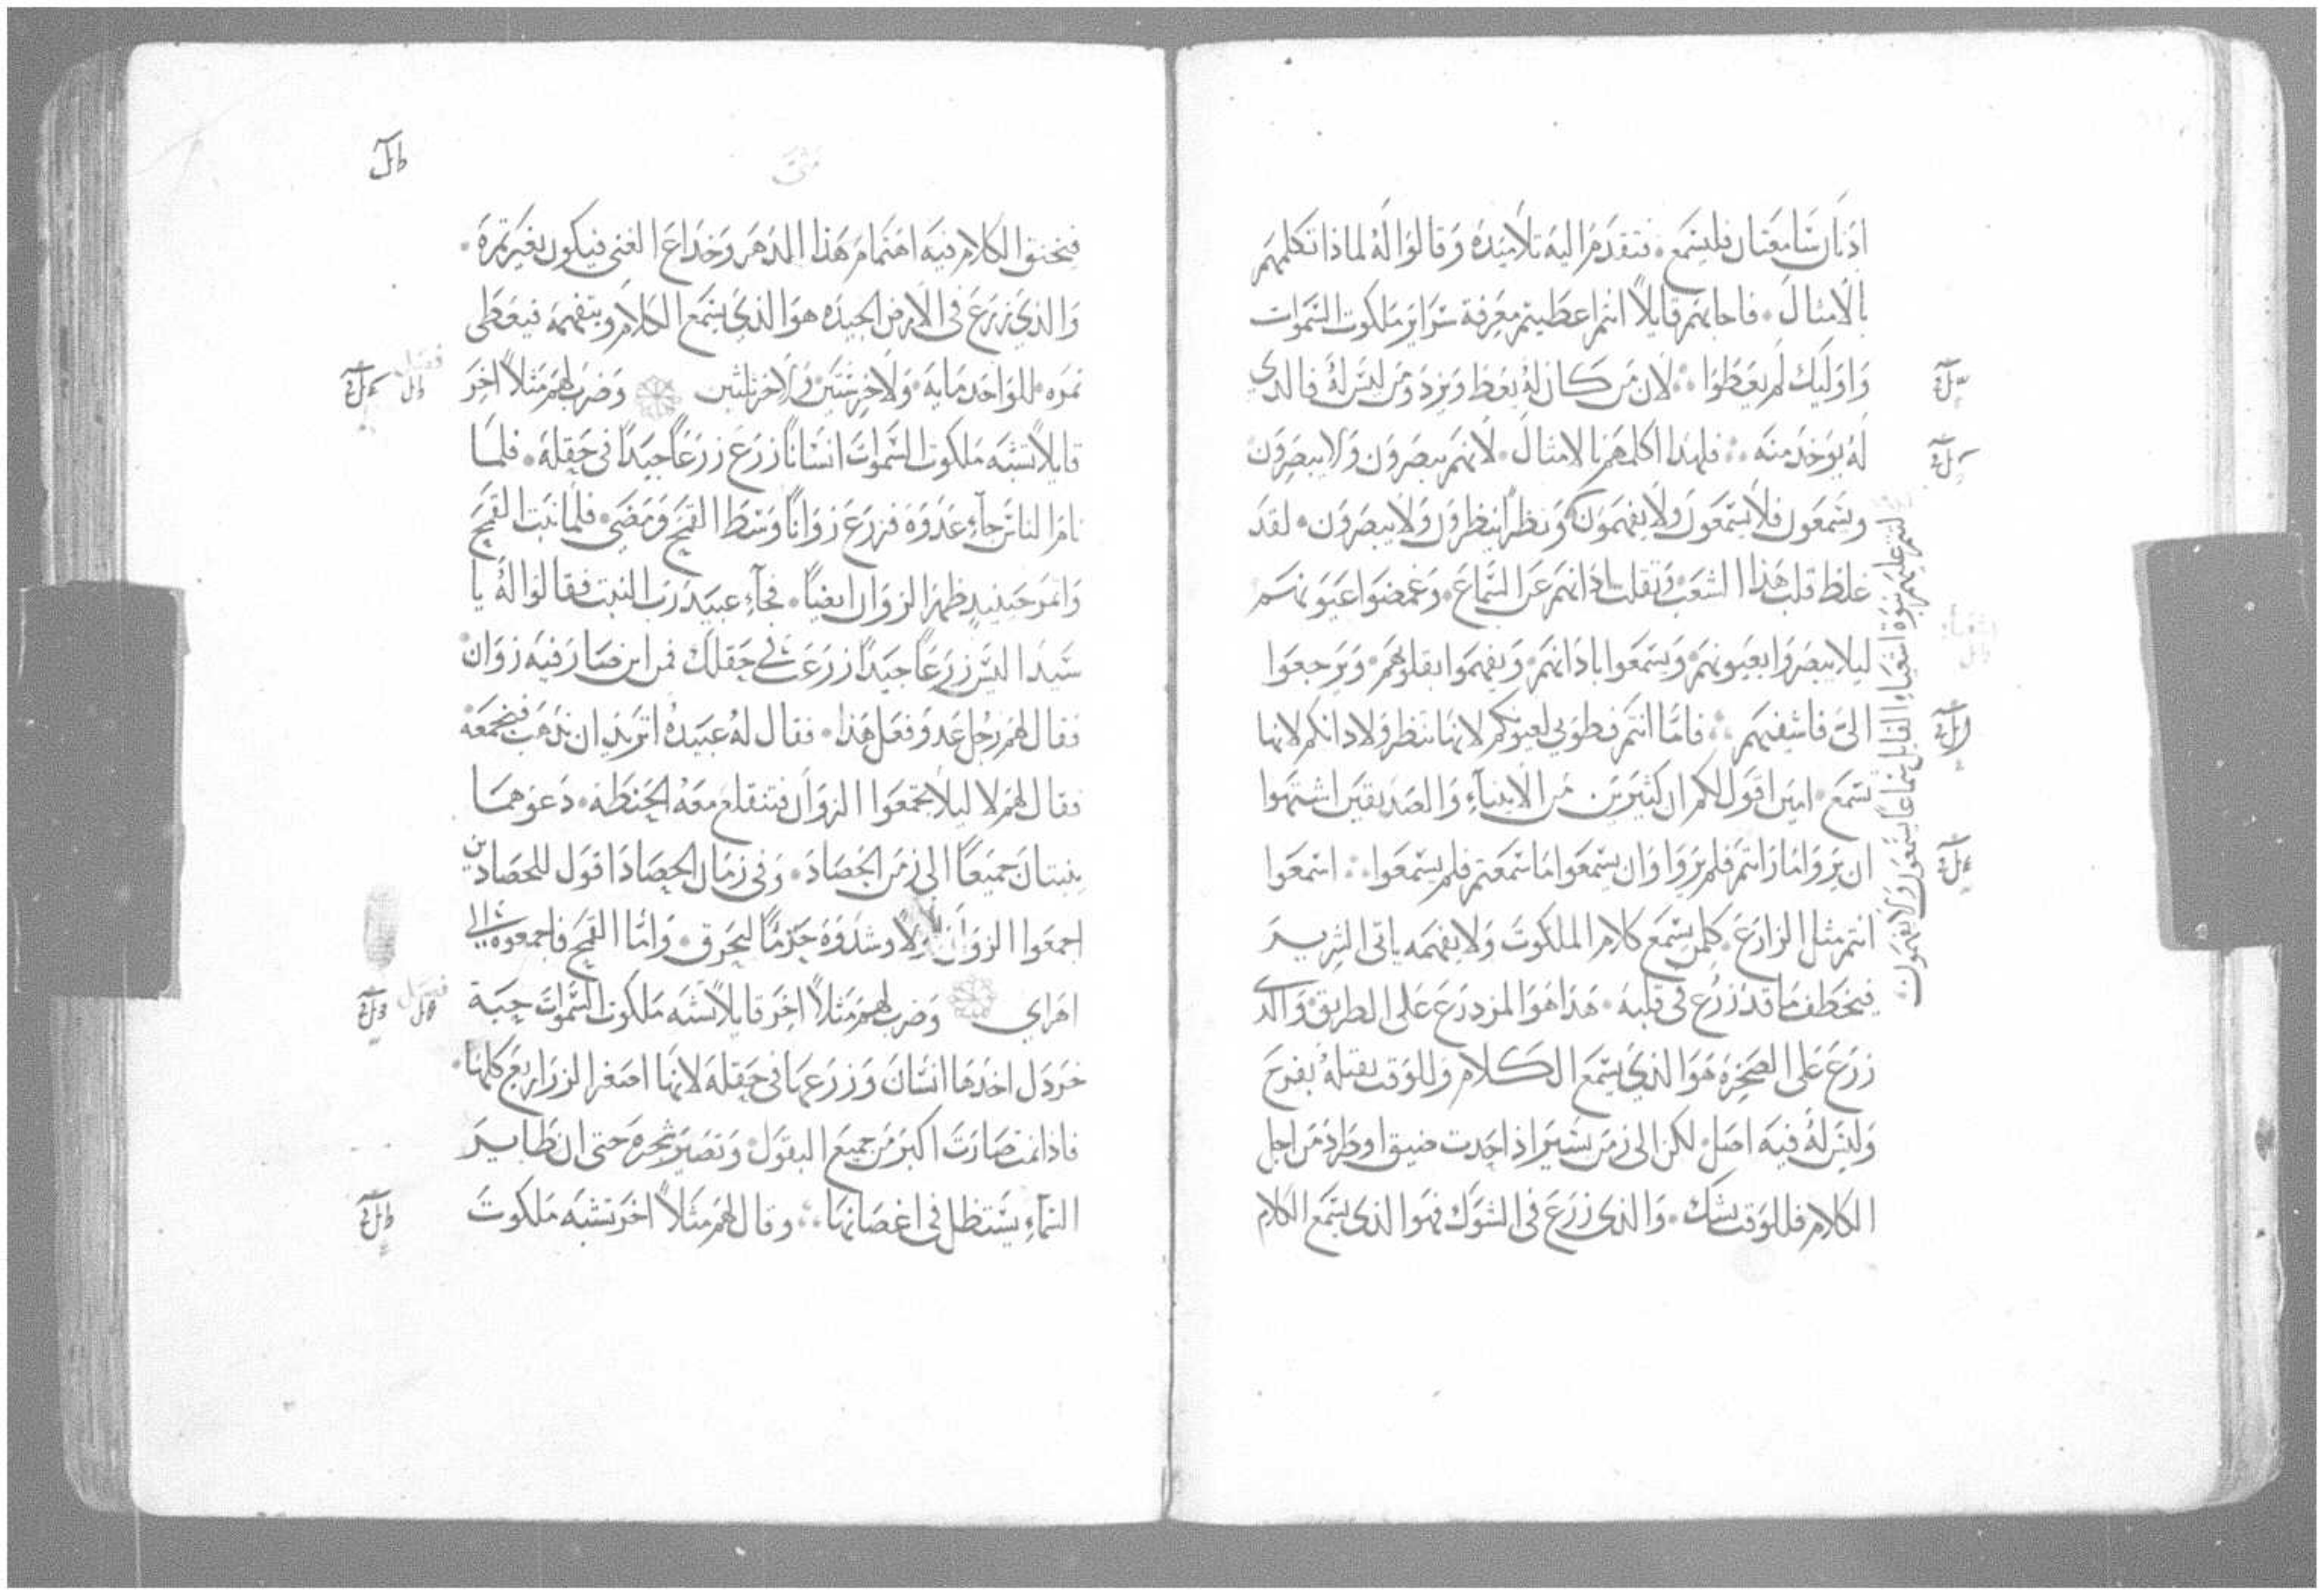 اذنان سامعتان فليسمع . فتقدم اليه تلاميذه وقالوا له لماذا تكلمهم
بالامثال . فاجابهم قايلا انتم اعطيتم معرفة سراير ملكوت السموات
واوليك لم يعطوا . لان من كان له يعط ويزد ومن ليس له فالدي
له يوخد منه . فلهدا اكلمهم بالامثال . لانهم يبصرون ولا يبصرون
ويسمعون فلا يسمعون ولا يفهمون ونظرا ينظرون ولا يبصرون . لقد
غلظ قلب هذا الشعب وثقلت اذانهم عن السماع . وغمضوا عيونهم
ليلا يبصروا بعيونهم ويسمعوا باذانهم ويفهموا بقلوبهم ويرجعوا
الى فاشفيهم . فاما انتم فطوبى لعيونكم لانها تنظر ولاذانكم لانها
تسمع . امين اقول لكم ان كثيرين من الانبياء والصديقين اشتهوا
ان يروا ما رايتم فلم يروا وان يسمعوا ما سمعتم فلم يسمعوا . اسمعوا
انتم مثل الزارع . كلمن يسمع كلام الملكوت ولا يفهمه ياتى الشرير
فيخطف ما قد زرع في قلبه . هذا هو المزدرع على الطريق والذي
زرع على الصخره هو الذي يسمع الكلام وللوقت يقبله بفرح
وليس له فيه اصل لكن الى زمن يسير اذا حدث ضيق او طرد من اجل
الكلام فللوقت يشك . والذى زرع فى الشوك فهو الذى يسمع الكلام
لتتم عليهم نبوة اشعياء القايل سماعا يسمعون ولا يفهمون
فيخنق الكلام فيه اهتمام هذا الدهر وخداع الغنى فيكون بغير ثمرة .
والذي زرع فى الارض الجيده هو الذي يسمع الكلام ويتفهمه فيعطى
ثمره . للواحد مايه ولاخر ستين ولاخر ثلثين وضرب لهم مثلا اخر
فصل
قايلا تشبه ملكوت السموات انسانا زرع زرعا جيدا في حقله . فلما
نام الناس جاء عدوه فزرع زوانا وسط القمح ومضى . فلما نبت القمح
واثمر حينيد ظهر الزوان ايضا . فجاء عبيد رب البيت فقالوا له يا
سيد اليس زرعا جيدا زرعت في حقلك فمن اين صار فيه زوان
فقال لهم رجل عدو فعل هذا . فقال له عبيده اتريد ان نذهب فنجمعه
فقال لهم لا ليلا تجمعوا الزوان فتنقلع معه الحنطة . دعوهما
ينبتان جميعا الى زمن الحصاد . وفى زمان الحصاد اقول للحصادين
اجمعوا الزوان اولا وشدوه حزما ليحرق . واما القمح فاجمعوه الى
اهراي وضرب لهم مثلا اخر قايلا تشبه ملكوت السموات حبة
فصل
خردل اخدها انسان وزرعها فى حقله لانها اصغر الزراريع كلها .
فاذا نمت صارت اكبر من جميع البقول وتصير شجره حتى ان طاير
السماء يستظل فى اغصانها . وقال لهم مثلا اخر تشبه ملكوت